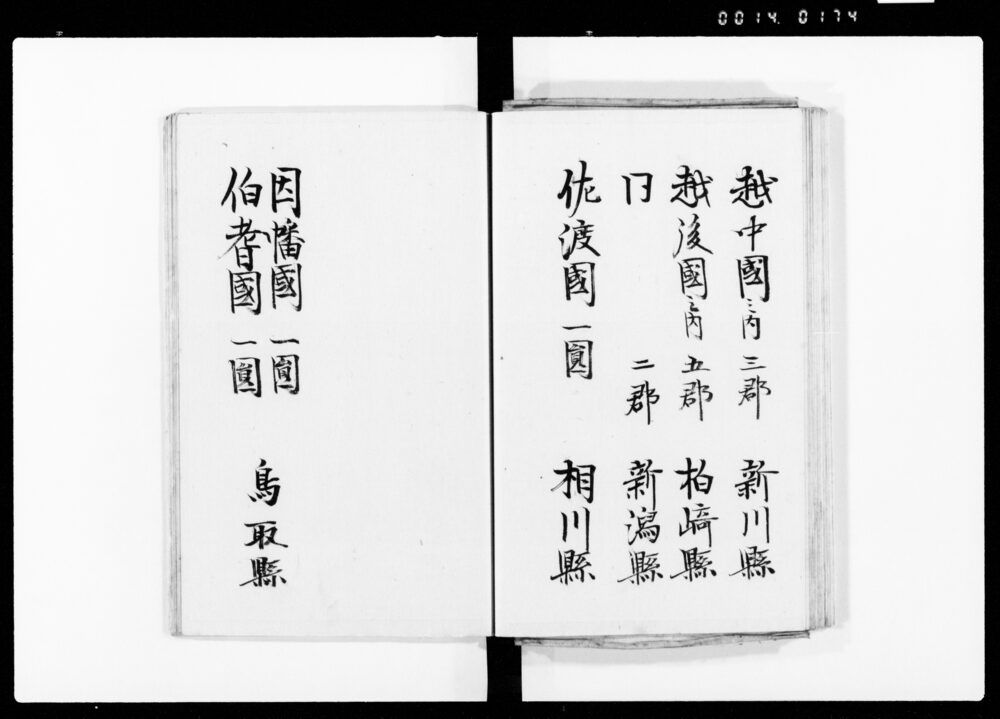 0014 0174
越中國之内 三郡 新川縣
越後國之内 五郡 柏﨑縣
同 二郡 新潟縣
佐渡國 一圓 相川縣
因幡國 一圓
伯耆國 一圓
鳥取縣